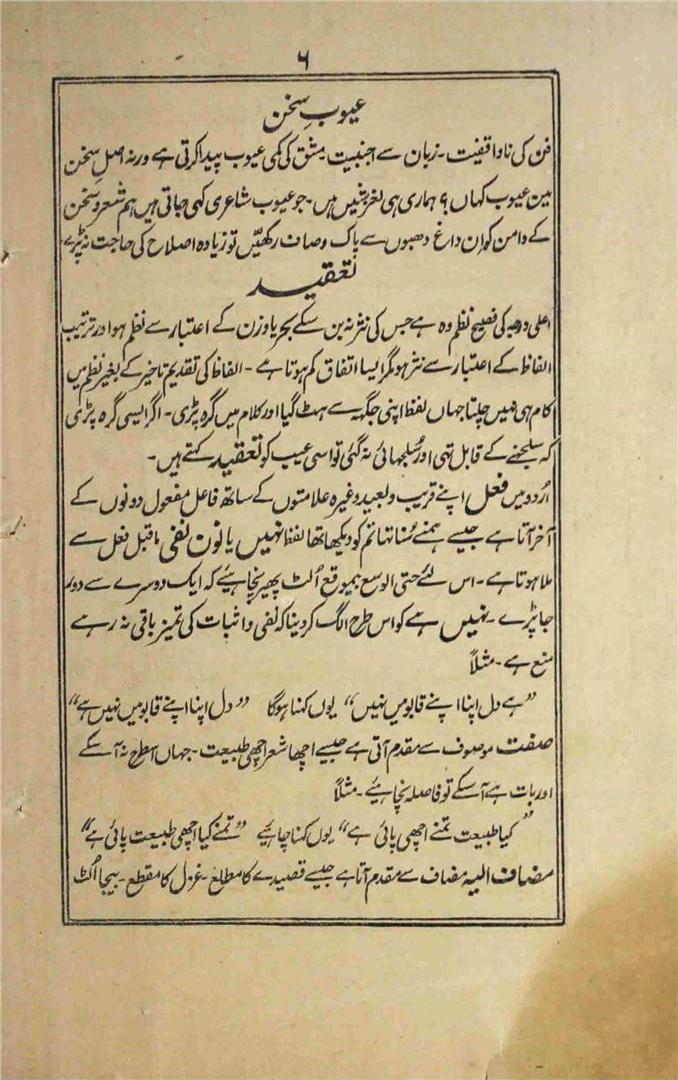 ۶
عیوبِ سخن
فن کی ناواقفیت۔ زبان سے اجنبیت۔ مشق کی کمی عیوب پیدا کرتی ہے ورنہ اصلِ سخن
مین عیوب کہاں؟ ہماری ہی لغزشیں ہیں۔ جو عیوب شاعری کہی جاتی ہیں ہم شعر و سخن
کے دامن کو ان داغ دھبوں سے پاک و صاف رکھیں تو زیادہ اصلاح کی حاجت نہ پڑے
تعقید
اعلیٰ درجہ کی فصیح نظم وہ ہے جس کی نثر نہ بن سکے بحر یا وزن کے اعتبار سے نظم ہو اور ترتیب
الفاظ کے اعتبار سے نثر ہو مگر ایسا اتفاق کم ہوتا ہے۔ الفاظ کی تقدیم تاخیر کے بغیر نظم میں
کام ہی نہیں چلتا جہاں لفظ اپنی جگہ سے ہٹ گیا اور کلام میں گرہ پڑی۔ اگر ایسی گرہ پڑی
کہ سلجھنے کے قابل تھی اور سُلجھائی نہ گئی تو اسی عیب کو تعقید کہتے ہیں۔
اُردو میں فعل اپنے قریب و بعید وغیرہ علامتوں کے ساتھ فاعل مفعول دونوں کے
آخر آتا ہے جیسے ہمنے سُنا تھا تم کو دیکھا تھا لفظ نہیں یا نون نفی ماقبل فعل سے
ملا ہوتا ہے۔ اس لئے حتی الوسع بیموقع اُلٹ پھیر نچاہئیے کہ ایک دوسرے سے دور
جا پڑے۔ نہیں ہے کو اس طرح الگ کر دینا کہ نفی و اثبات کی تمیز باقی نہ رہے
منع ہے۔ مثلاً
”ہے دل اپنا اپنے قابو میں نہیں“ یوں کہنا ہوگا ”دل اپنا اپنے قابو میں نہیں ہے“
صفت موصوف سے مقدم آتی ہے جیسے اچھا شعر اچھی طبیعت۔ جہاں اسطرح نہ آ سکے
اور بات ہے آ سکے تو فاصلہ نچاہئیے۔ مثلاً
”کیا طبیعت تمنے اچھی پائی ہے“ یوں کہنا چاہئیے ”تمنے کیا اچھی طبیعت پائی ہے“
مضاف الیہ مضاف سے مقدم آتا ہے جیسے قصیدے کا مطلع۔ غزل کا مقطع۔ بیجا اُلٹ